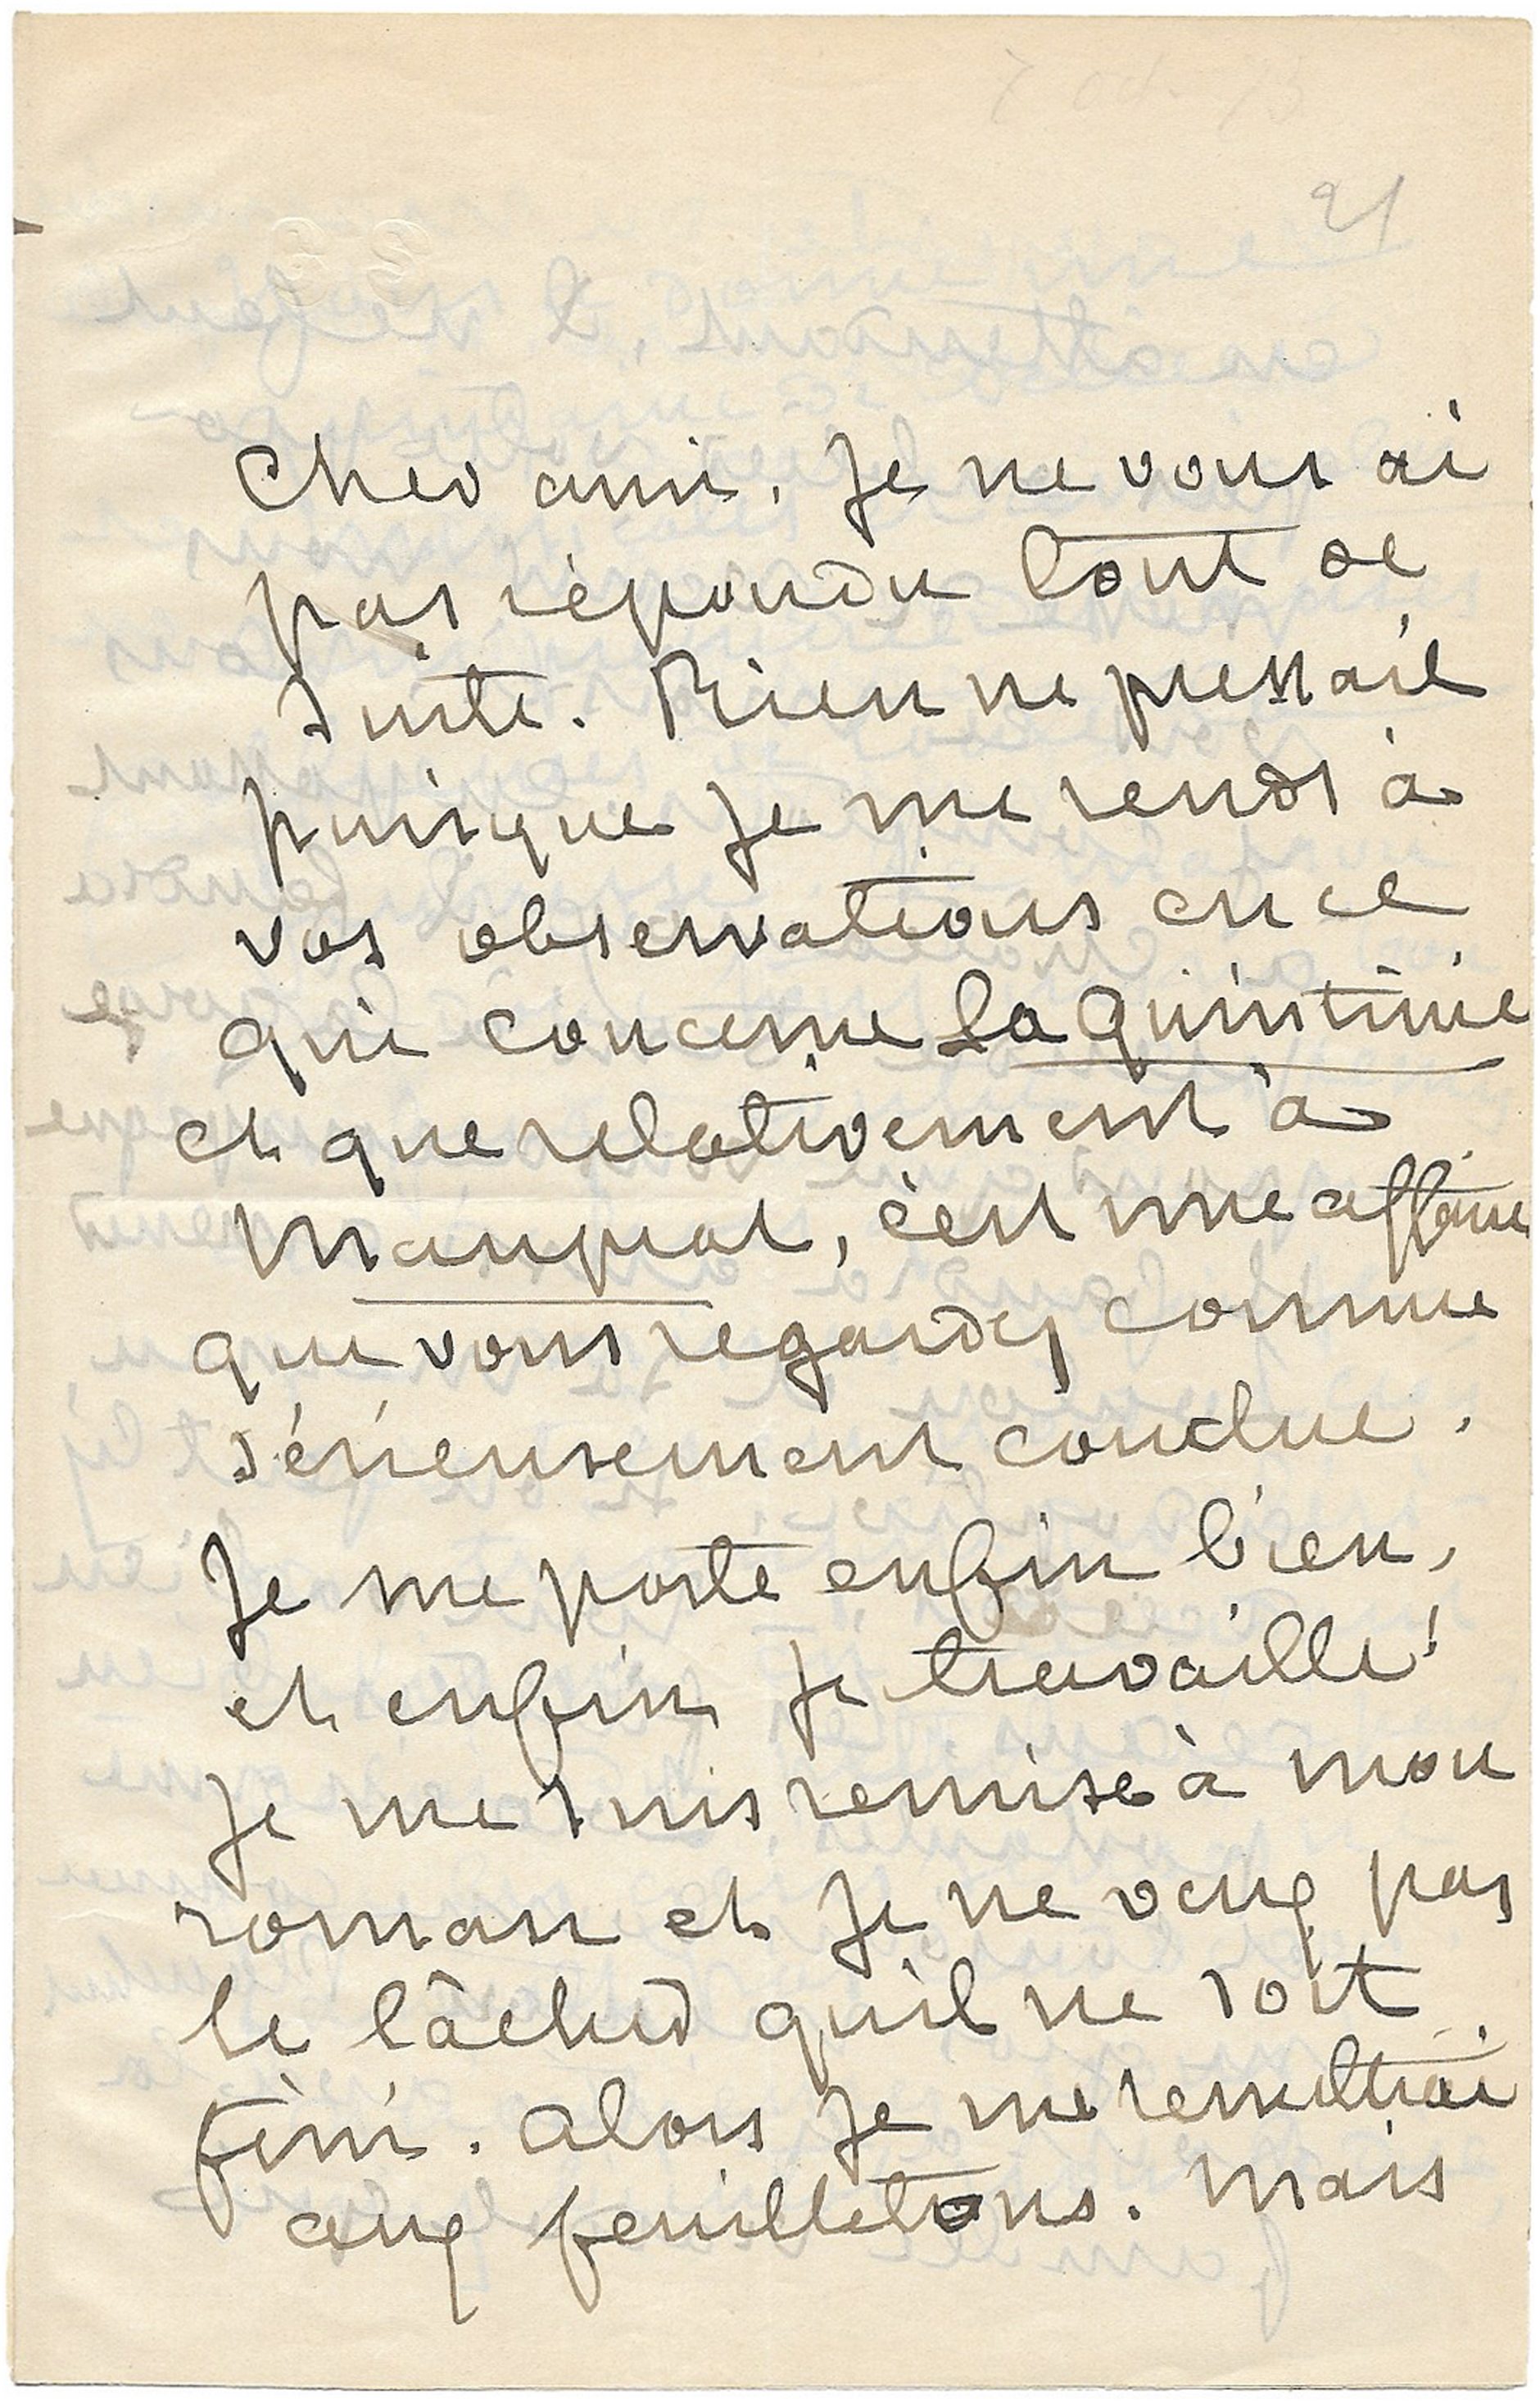 21
Cher ami. Je ne vous ai
pas répondu tout de
suite. Rien ne pressait
puisque je me rends à
vos observations en ce
qui concerne La Quintinie
et que relativement à
Mauprat, c'est une affaire
que vous regardez comme
sérieusement conclue.
Je me porte enfin bien,
et enfin je travaille!
Je me suis remise à mon
roman et je ne veux pas
le lâcher qu'il ne soit
fini. Alors je me remettrai
aux feuilletons. Mais